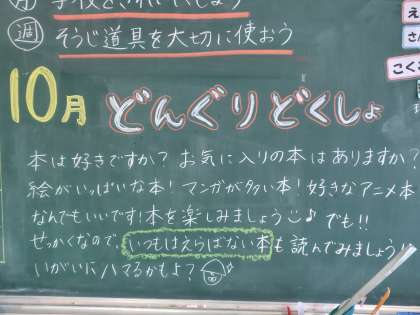 週 そうじ道具を大切に使おう
え
さん
こくご
10月 どんぐりどくしょ
本は好きですか？ お気に入りの本はありますか？
絵がいっぱいな本！ マンガが多い本！ 好きなアニメ本
なんでもいいです！本を楽しみましょう♪ でも!!
せっかくなので、いつもはえらばない本も読んでみましょう!!
いがいにハマるかもよ？